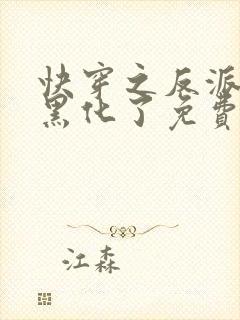 快穿之反派
黑化了免費
江森